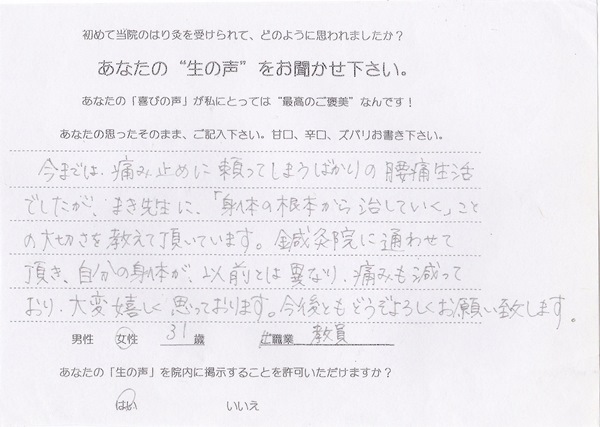 初めて当院のはり灸を受けられて、どのように思われましたか?
あなたの“生の声”をお聞かせ下さい。
あなたの「喜びの声」が私にとっては“最高のご褒美”なんです!
あなたの思ったそのまま、ご記入下さい。甘口、辛口、ズバリお書き下さい。
今までは、痛み止めに頼ってしまうばかりの腰痛生活
でしたが、まき先生に、「身体の根本から治していく」こと
の大切さを教えて頂いています。鍼灸院に通わせて
頂き、自分の身体が、以前とは異なり、痛みも減って
おり、大変嬉しく思っております。今後ともどうぞよろしくお願い致します。
男性 女性 31 歳 ご職業 教員
あなたの「生の声」を院内に掲示することを許可いただけますか?
はい いいえ